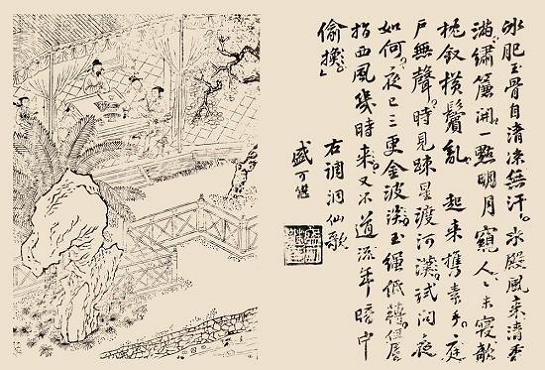 冰肥玉骨自清涼無汗。水殿風來清香
滿。繡簾開一點明月窺人。人未寢欹
枕釵橫鬢亂。起來攜素手。庭
戶無聲。時見疎星渡河漢。試問夜
如何。夜已三更金波淡玉繩低轉。但屈
指西風幾時來。又不道流年暗中
偷換
右調洞仙歌
盛可